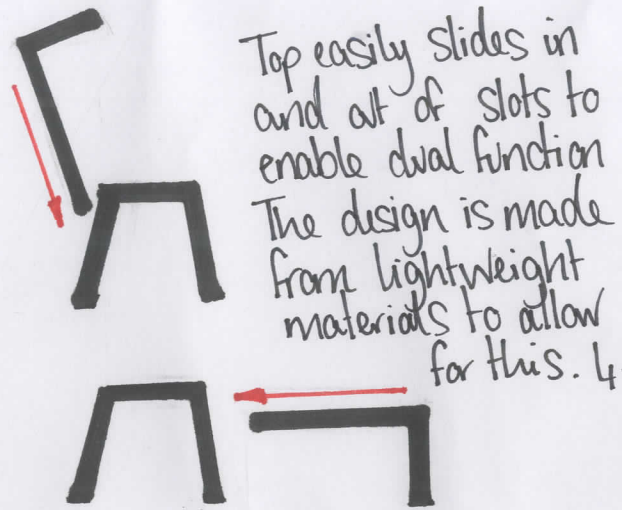 Top easily slides in
and out of slots to
enable dual function
The design is made
from lightweight
materials to allow
for this. 4